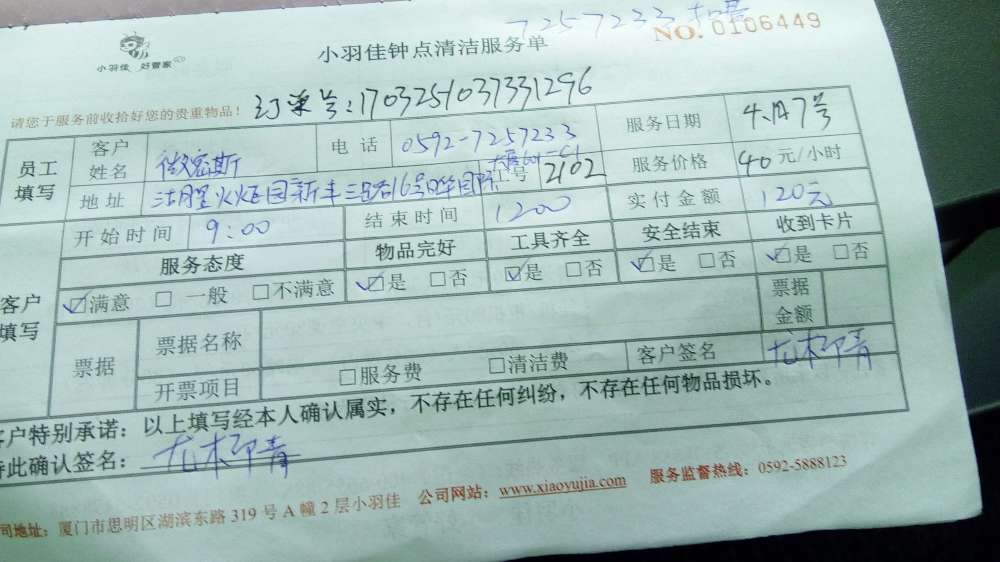 7257233
小羽佳钟点清洁服务单
NO. 0106449
小羽佳 好管家
请您于服务前收拾好您的贵重物品!
订单号:170325103733 1296
员工填写
客户姓名 微密斯
电话 0592-7257233
服务日期 4月7号
地址 湖里火炬园新丰三路16号日华国际
工号 2102
服务价格 40元/小时
客户填写
开始时间 9:00
结束时间 1200
实付金额 120元
服务态度 物品完好 工具齐全 安全结束 收到卡片
☑满意 □一般 □不满意 ☑是 □否 ☑是 □否 ☑是 □否 ☑是 □否
票据 票据名称
票据金额
开票项目 □服务费 □清洁费
客户签名
客户特别承诺:以上填写经本人确认属实,不存在任何纠纷,不存在任何物品损坏。
此确认签名:
司地址:厦门市思明区湖滨东路319号A幢2层小羽佳 公司网站:www.xiaoyujia.com 服务监督热线:0592-5888123